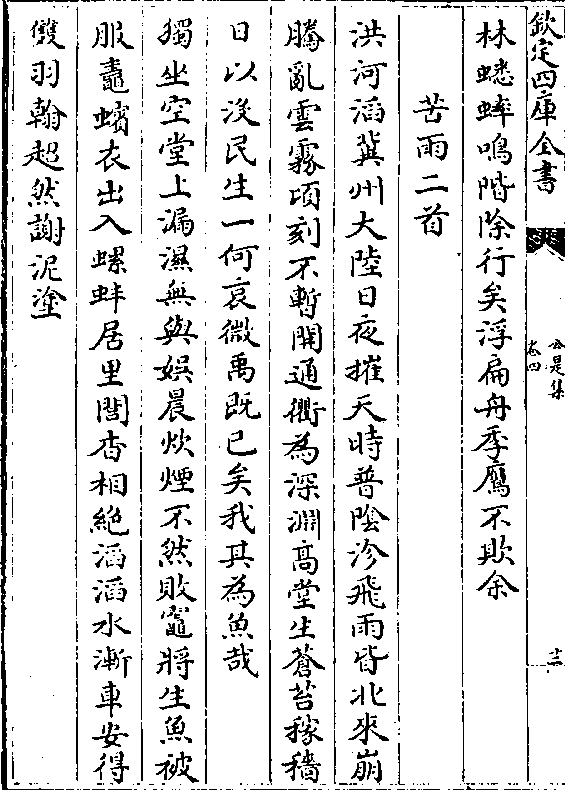 欽定四庫全書
公是集
卷四
十二
林蟋蟀鳴階除行矣浮扁舟季鷹不欺余
苦雨二首
洪河滔冀州大陸日夜摧天時普陰沴飛雨皆北來崩
騰亂雲霧頃刻不暫開通衢為深淵高堂生蒼苔稼穡
日以沒民生一何哀微禹既已矣我其為魚哉
獨坐空堂上漏濕無與娛晨炊煙不然敗竈將生魚被
服鼃蠙衣出入螺蚌居里閭杳相絶滔滔水漸車安得
雙羽翰超然謝泥塗